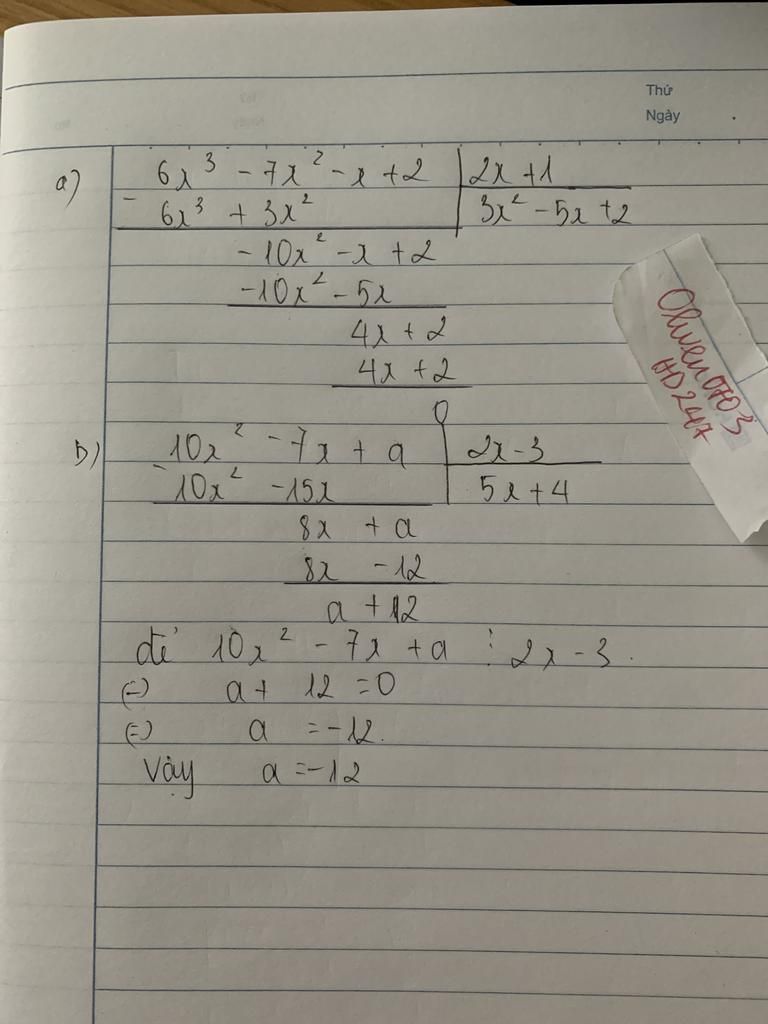 Thứ
Ngày
a) 6x³ - 7x² - x + 2 | 2x + 1
- 6x³ + 3x² | 3x² - 5x + 2
-10x² - x + 2
-10x² - 5x
4x + 2
4x + 2
0
b) 10x² - 7x + a | 2x - 3
- 10x² - 15x | 5x + 4
8x + a
8x - 12
a + 12
để 10x² - 7x + a ⋮ 2x - 3.
(=) a + 12 = 0
(=) a = -12.
Vậy a = -12
HD247